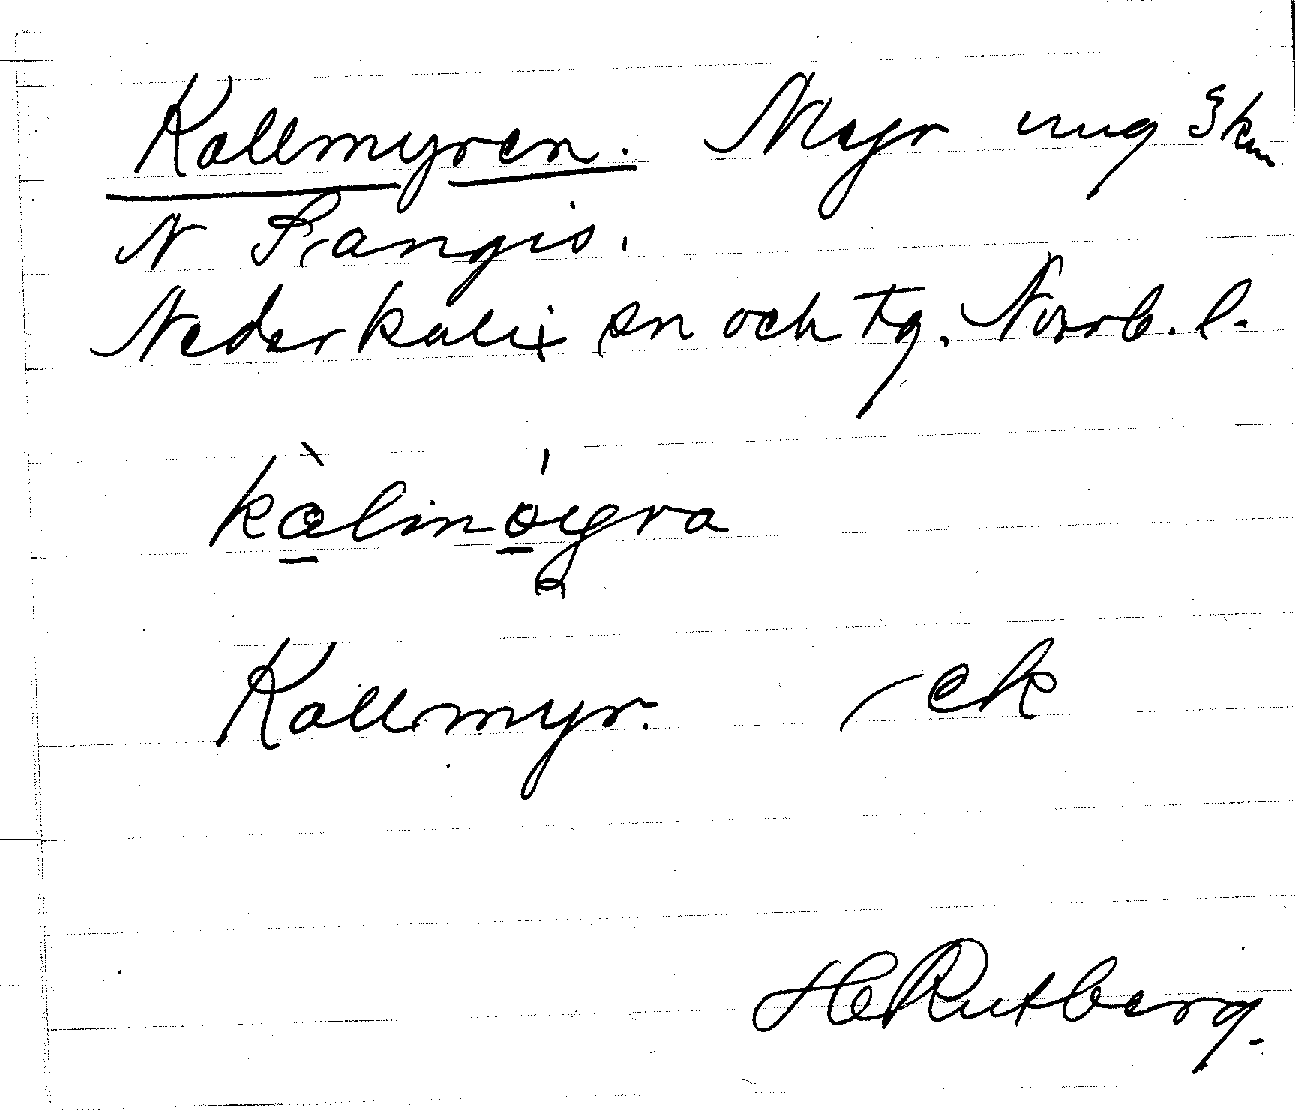 Kallmyren. Myr ung 3 km
N Sangis.
Nederkalix sn och tg. Norrb. l.
Kallmyr. ek
H Rutberg.